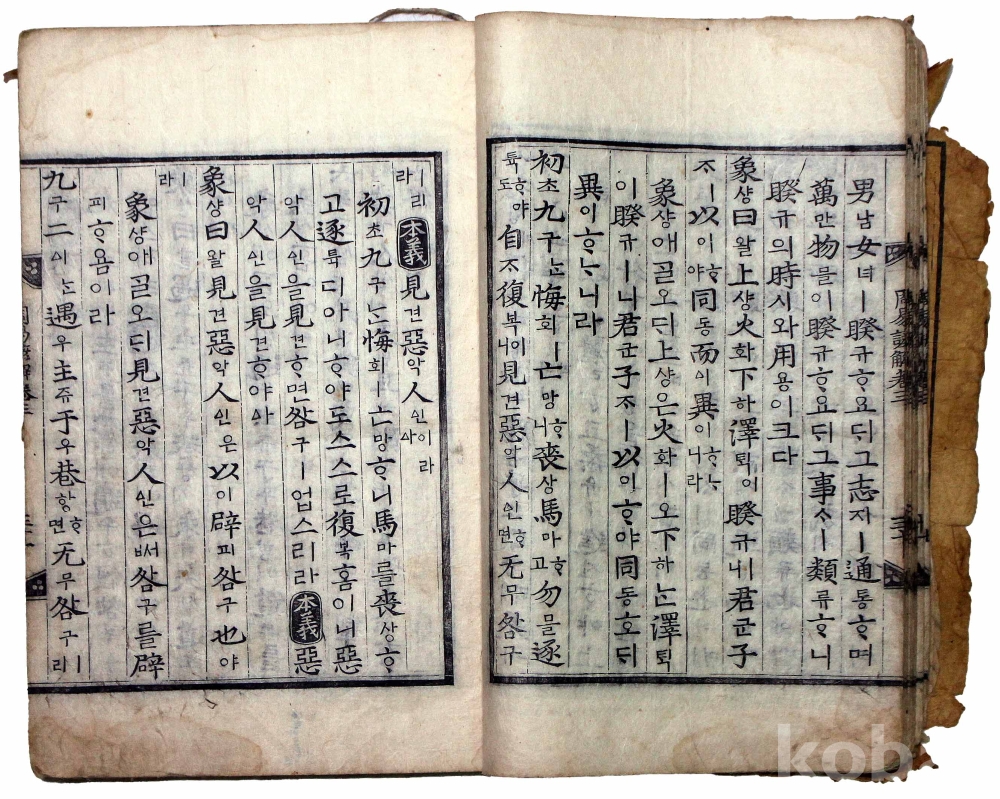 男남女녀ㅣ睽규ᄒᆞ요ᄃᆡ그志지ㅣ通통ᄒᆞ며
萬만物믈이睽규ᄒᆞ요ᄃᆡ그事ᄉᆞㅣ類류ᄒᆞ니
睽규의時시와用용이크다
象샹曰왈上샹火화下하澤ᄐᆡᆨ이睽규ㅣ니君군子
ᄌᆞㅣ以이ᄒᆞ야同동而이異이ᄒᆞᄂᆞ니라
象샹애ᄀᆞᆯ오ᄃᆡ上샹은火화ㅣ오下하ᄂᆞᆫ澤ᄐᆡᆨ
이睽규ㅣ니君군子ᄌᆞㅣ以이ᄒᆞ야同동호ᄃᆡ
異이ᄒᆞᄂᆞ니라
初초九구ᄂᆞᆫ悔회ㅣ亡망ᄒᆞ니喪상馬마ᄒᆞ고勿믈逐
튝ᄒᆞ야도自ᄌᆞ復복이니見견惡악人인ᄒᆞ면无무咎구
ㅣ리라 本義 見견惡악人인이라사
初초九구ᄂᆞᆫ悔회ㅣ亡망ᄒᆞ니馬마를喪상ᄒᆞ
고逐튝디아니ᄒᆞ야도스스로復복홈이니惡
악人인을見견ᄒᆞ면咎구ㅣ업스리라 本義 惡
악人인을見견ᄒᆞ야사
象샹曰왈見견惡악人인은以이辟피咎구也야
ㅣ라
象샹애ᄀᆞᆯ오ᄃᆡ見견惡악人인은ᄡᅥ咎구를辟
피ᄒᆞ욤이라
九구二이ᄂᆞᆫ遇우主쥬于우巷항ᄒᆞ면无무咎구ㅣ리
周易諺解卷三
kob